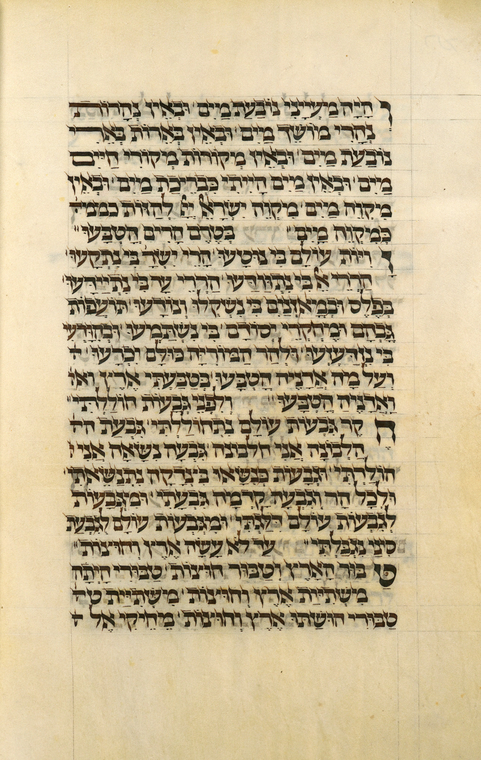 ו חיה מעייני נובעת מים ובאין נהרות
נהרי מושך מים ובאין בארות בארי
נובעת מים ובאין מקורות מקורי חיים
מים ובאין מים הייתי כבריכת מים ובאין
מיקוה מים מיקוה ישראל להחות
כמיקוה מים בטרם הרים הטבעו
עולם כי הרי ישר בי נתקעו
הררי אל בי נתוודעו הררי עד בי נתיידעו
בפלס ובמאזנים בי נשקלו ונודעו תועפות
גבהם ומיחקרי יסודם בי נשתמעו
כי נזדעזעו ולהר המוריה כולם וכרעו
ועל מה אדניה הטבעו בטבעתי ארץ ואז
ואדניה הטבעו ולפני גבעות חוללתי
ח קר גבעות עולם נתחוללתי גבעת הה
הלבונה אני חלבונה גבעה נשאה אני ו
חוללתי וגבעות כנשאו בי צדקה נתנשאתי
ולכל הר וגבעה קדמיה גבעתי ומגבעות
לגבעות עולם דלגתי ומגבעות עולם לגבעת
סיני נגבלתי עד לא עשה ארץ וחוצות
ט בור הארץ וטבור חוצות טבורי חיתה
מישתיית ארץ וחוצות מישתיית טה
טבורי חושתו ארץ וחוצות מחיקי אל ד